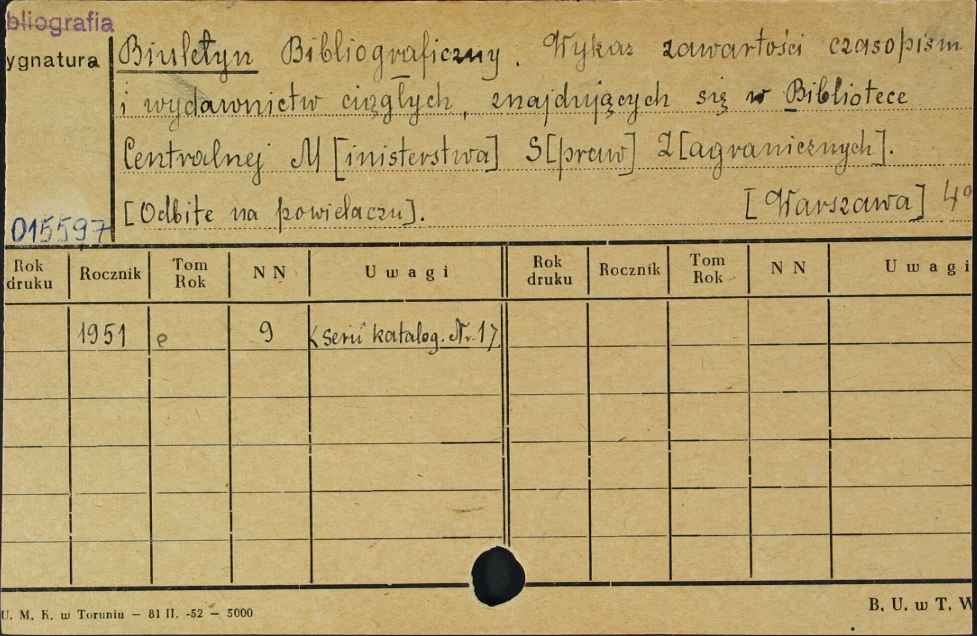 bliografia
ygnatura
Biuletyn Bibliograficzny. Wykaz zawartości czasopism
i wydawnictw ciągłych, znajdujących się w Bibliotece
Centralnej M[inisterstwa] S[praw] Z[agranicznych].
[Odbite na powielaczu]. [Warszawa] 4°
015597
Rok druku Rocznik Tom Rok N N Uwagi Rok druku Rocznik Tom Rok N N Uwagi
1951 9 <Serii katalog. Nr 1>
U. M. K. w Toruniu — 81 II. -52 — 5000
B. U. w T. W